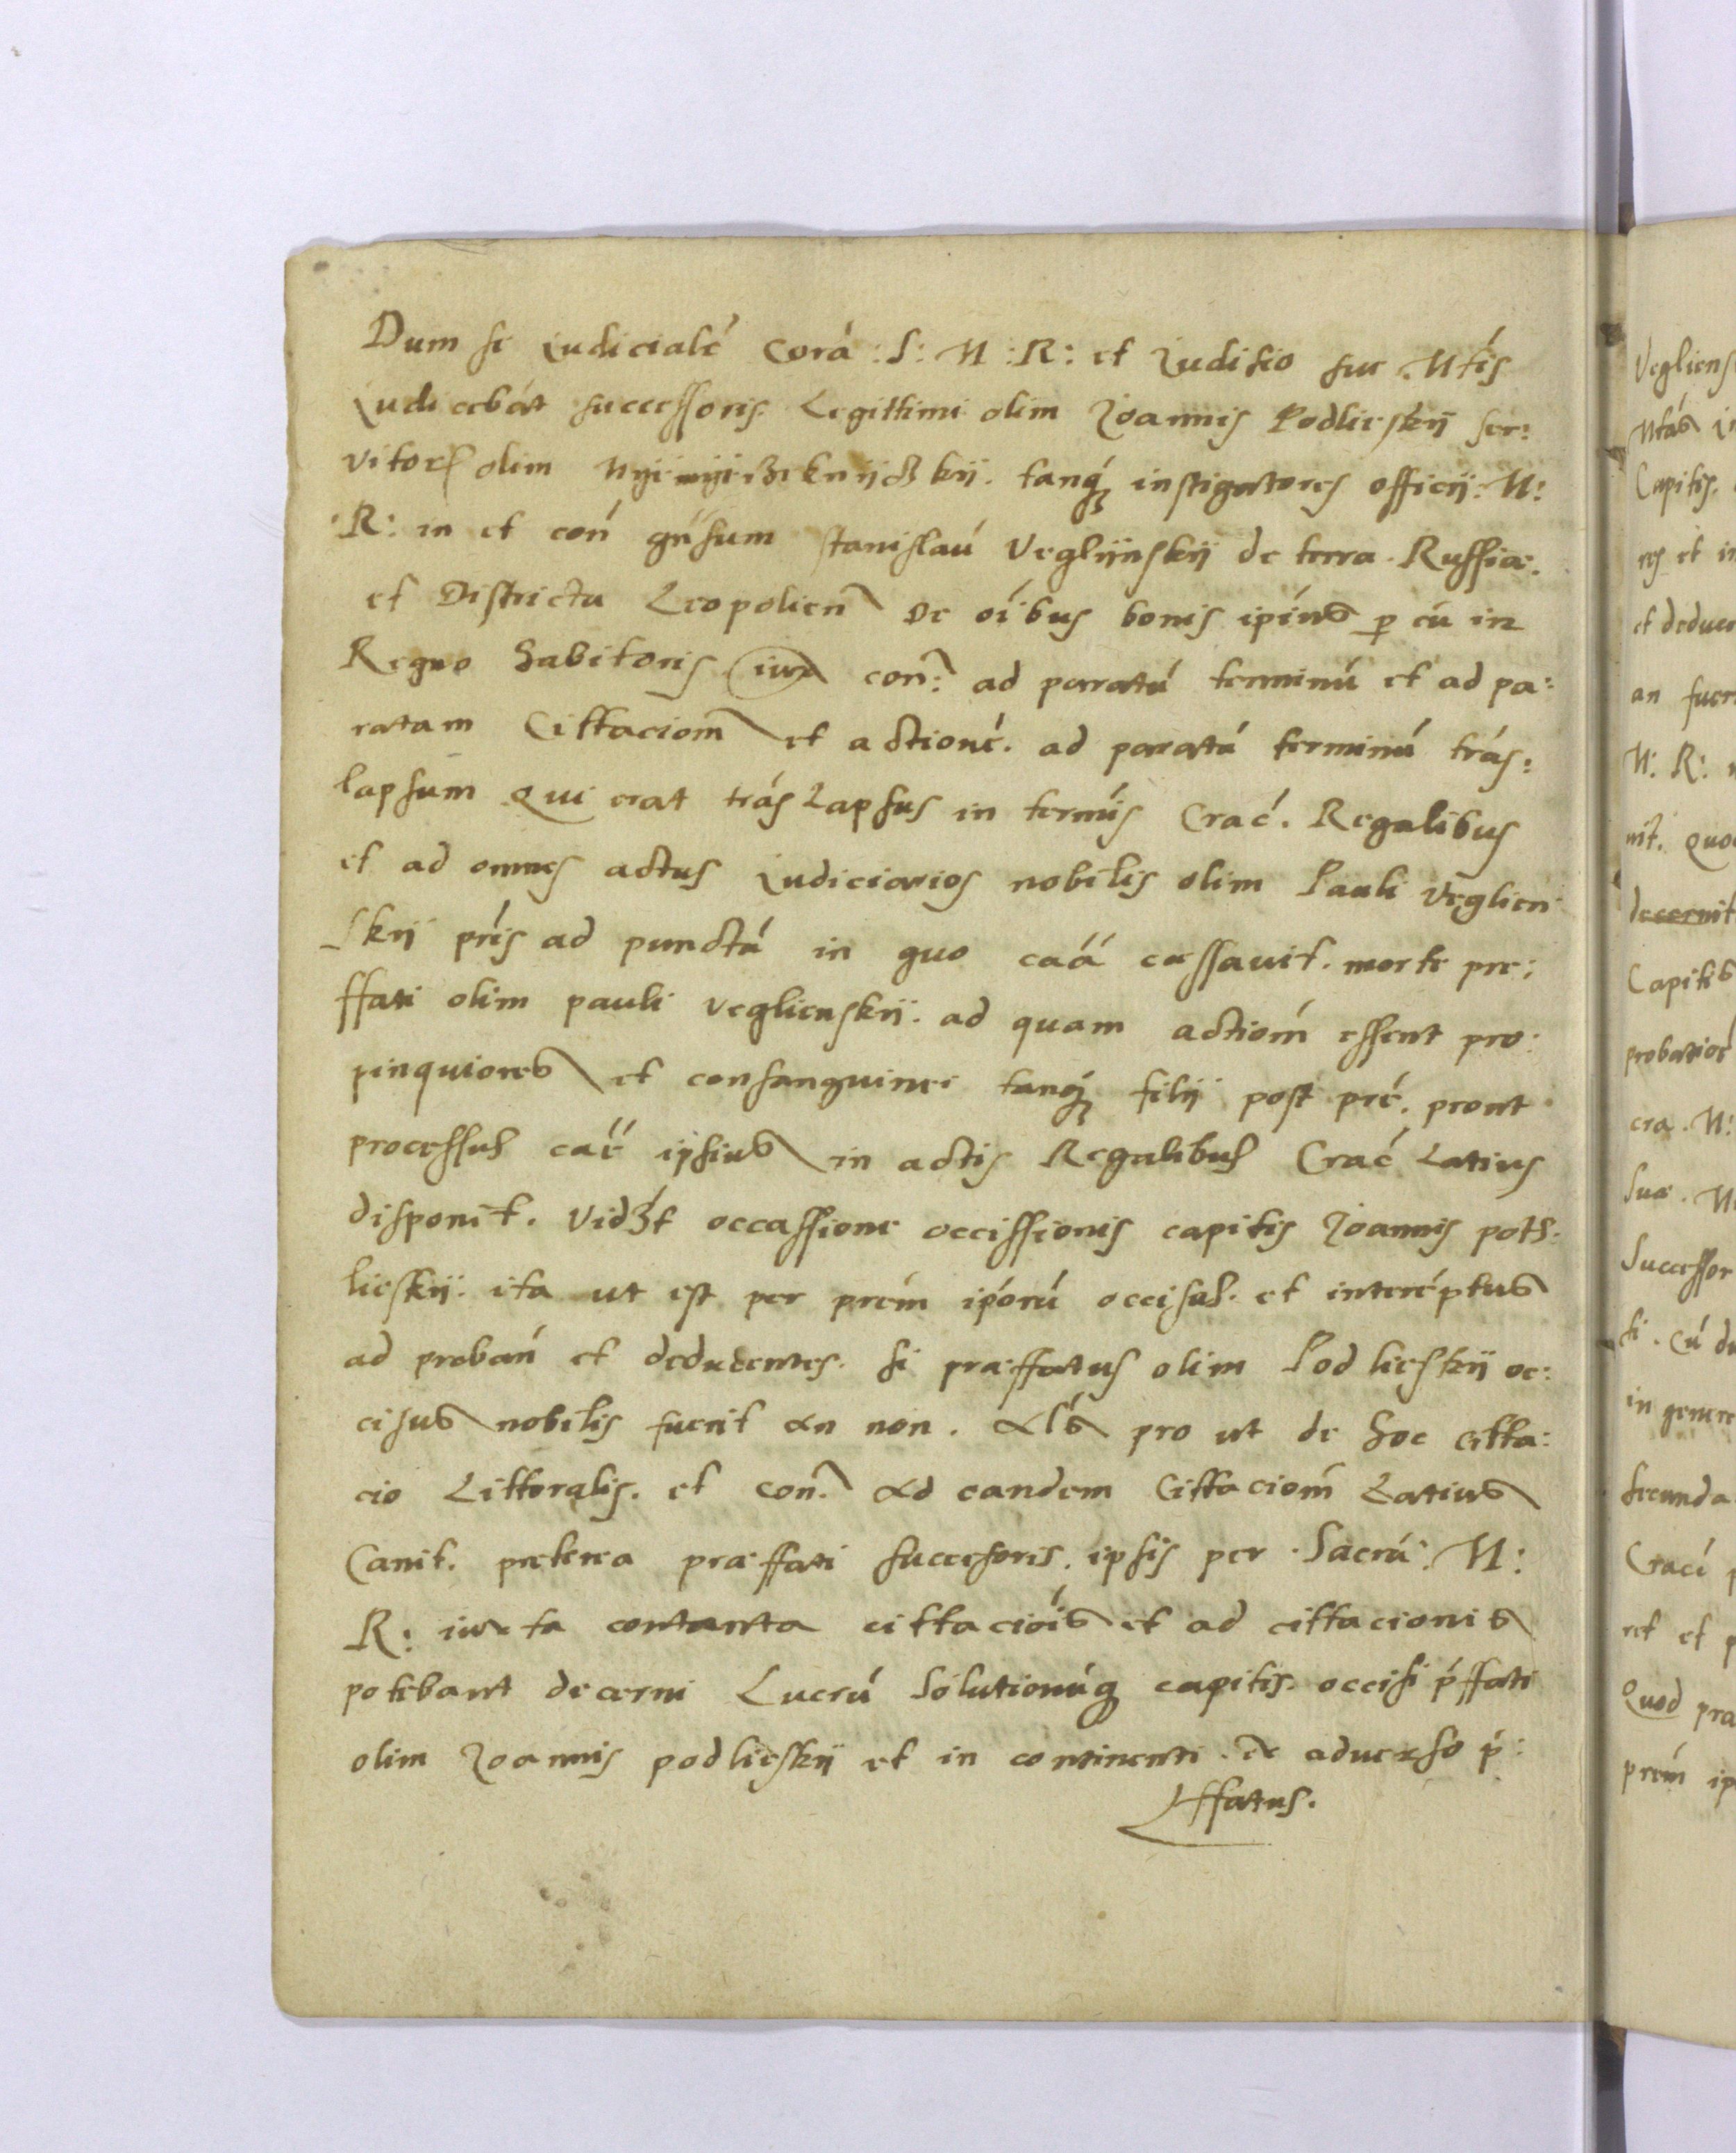 Dum se iudicialé Corá : S : M : R : et Iudisio sue Mtis
Iudicebát successoris Legittimi olim Ioannis Podlieskÿ ser:
vitoris olim tanq́ instigatores officÿ : M :
R : in et coń gńsum Stanislaú Veglijnskÿ de terra . Russiæ .
et Districtu Leopolień De oíbus bonis ipíus p eú in
Regno habitoris iux coń : ad paratú terminú et ad pa:
ratam Cittaciom̃ et actioné . ad paratú terminú trás:
lapsum Qui erat tráslapsus in termís Crać . Regalibus
et ad omnes actus Iudiciarios nobilis olim Pauli Veglien
skÿ pŕis ad punctú in quo caá cassauit . morte pre:
ffati olim pauli Veglienskÿ . ad quam actiom̃ essent pro:
pinquiores et consanguinei tanq́ filÿ post pré . prout
processus caé ipsius in actis Regalibus Crać Latius
disponit . Vidзt occassione occissionis capitis Ioannis pod
lieskÿ . ita ut est per prém ipórú occisus . et interéptus
ad probań et deducentes . si præffatus olim Podlieskÿ oc:
cisus nobilis fuerit an non . Als pro ut de hoc citta:
cio Littoralis . et coń . Ad eandem Cittaciom̃ Latius
Canit . preterea præffati succesoris . ipsis per . Sacrá . M :
R : iuxta contanta cittacióis et ad cittacionis
potebant decerni Lucrú Solutionúq capitis . occisi ṕffati
olim Ioannis podlieskÿ et in continenti . Ex aduerso ṕ :
ffatus .
Vegliens
Mtás
Capitis .
res et in
et deduce
an fuer
M : R :
nit . Quo
decernit
Capitis
probatioé
cra . M :
Suæ . M
Successor
si . Cú du
in genere
secunda
Crací p
ret et p
Quod pra
prém ip